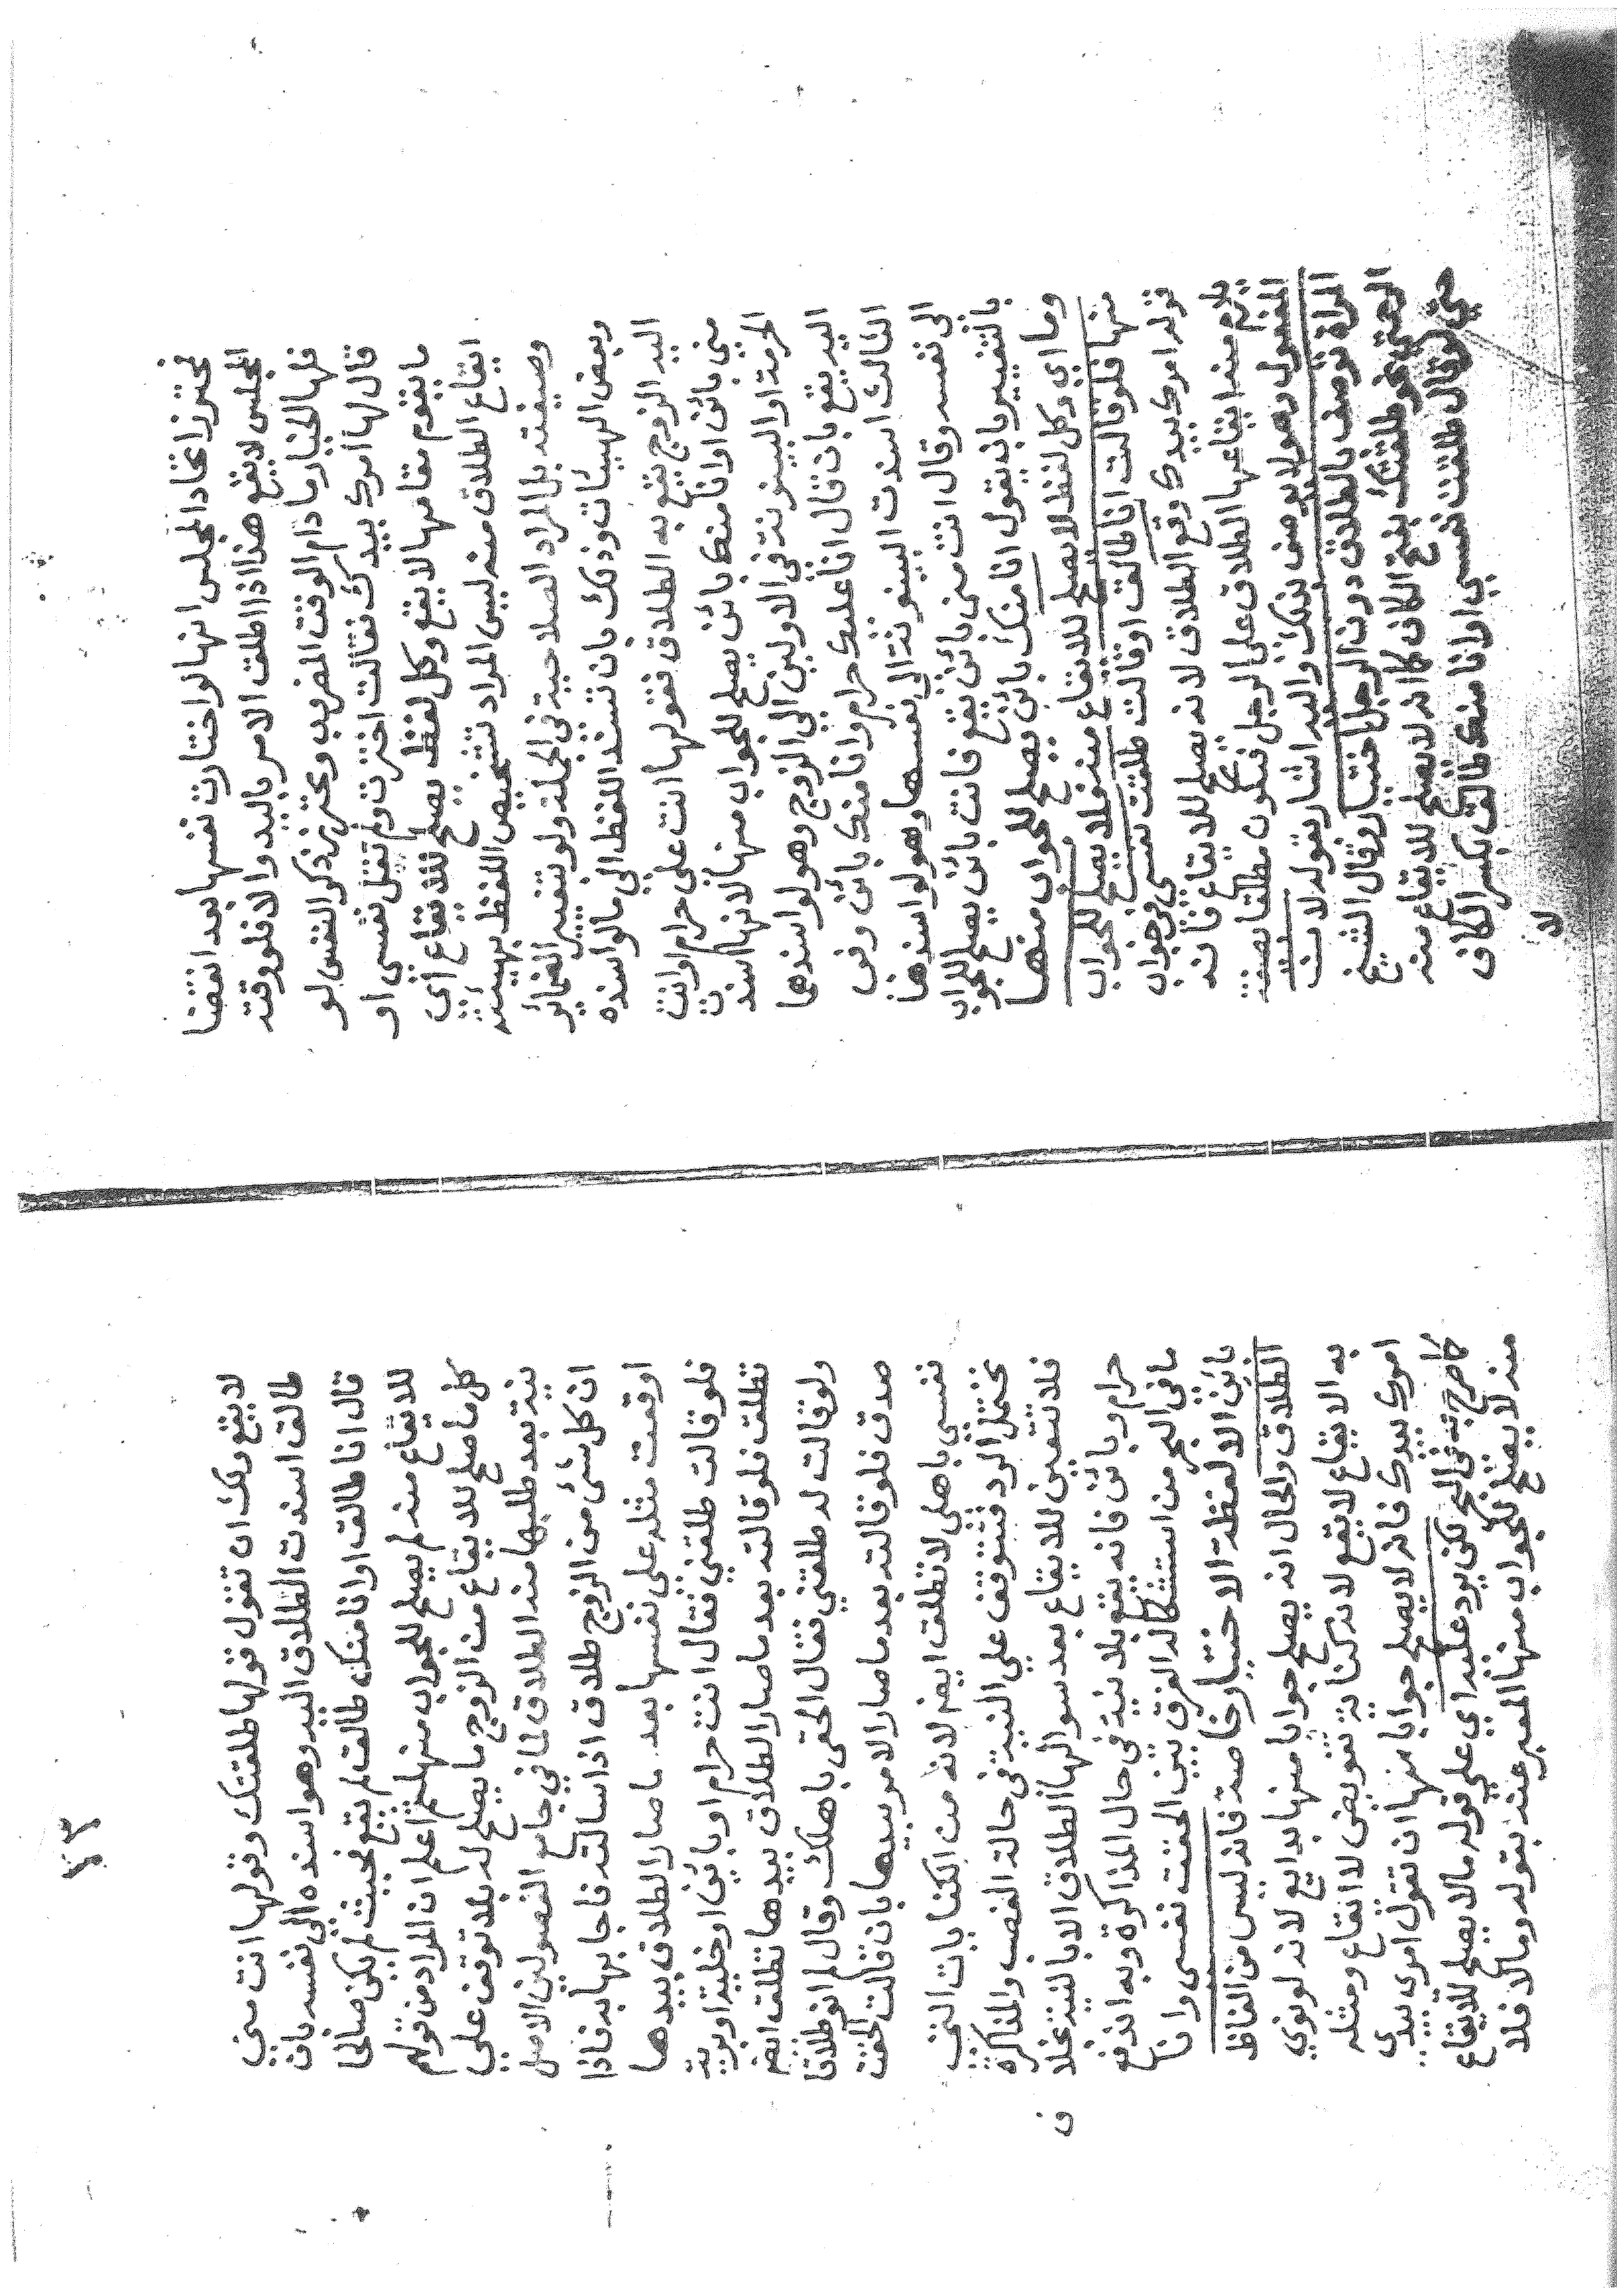 فمحترز اتحاد المجلس انها لو اختارت نفسها بعد انقضا
المجلس لا يقع هذا اذا اطلقت الامر باليد والا فلو وقته
فلها الخيار ما دام الوقت المضروب ومحترز ذكر النفس لو
قال لها امرك بيدك فقالت اخترت ولم تقل نفسي او
ما يقوم مقامها لا يقع وكل لفظ يصلح للايقاع اي
ايقاع الطلاق منه ليس المراد تشخيص اللفظ بهيئته
وصيغته بل المراد الصلاحية في الجملة ولو بتغيير الضمائر
وبعض الهيئات وذلك بان تسند اللفظ الي ما لو اسنده
اليه الزوج يقع به الطلاق فقولها انت علي حرام او انت
مني بائن او انا منك بائن يصلح للجواب منها لانها اسندت
الحرمة او البينونة في الاولين الي الزوج وهو لو اسندهما
اليه يقع بان قال انا عليك حرام وانا منك بائن وفي
الثالث اسندت البينونة الي نفسها وهو لو اسندها
الى نفسه وقال انت مني بائن يقع فانت بائن يصلح للجواب
بالتغيير بانه يقول انا منك بائن يصلح للجواب منها
وما اي وكل لفظ لا يصلح للايقاع منه لا يصلح للجواب
منها فلو قالت انا طالق او قالت طلقت نفسي في جواب
قوله امرك بيدك وقع الطلاق لانه يصلح للايقاع فانه
يلزم منه ايقاعها الطلاق على الرجل فيكون مطلقا بصيغة
المفعول وهو لا يوصف بذلك واليه اشار بقوله لان
المراة توصف بالطلاق دون الرجل اختيار وقال الشيخ
الرحمتي نحو طلقتك بفتح الكاف كما انه لا يصلح للايقاع منه
حتى لو قال طلقت نفسي او انا منك طالق بكسر الكاف
لا
٤٣
لا يقع ولك ان تقول قولها طلقتك وقولها انت مني
طالق اسندت الطلاق اليه وهو لو اسنده الي نفسه بان
قال انا طالق او انا منك طالق لم يقع فحيث لم يكن صالحا
للايقاع منه لم يصلح للجواب منها ثم اعلم ان المراد من قولهم
كل ما صلح للايقاع من الزوج ما يصلح له بلا توقف علي
نية بعد طلبها منه الطلاق لما في جامع الفصولين الاصل
ان كل شئ من الزوج طلاق اذا سالته فاجابها به فاذا
اوقعت مثله على نفسها بعد ما صار الطلاق بيدها
فلو قالت طلقني فقال انت حرام او بائن او خلية او برية
تطلق فلو قالته بعد ما صار الطلاق بيدها تطلق ايضا
ولو قالت له طلقني فقال الحقي باهلك وقال لم انو طلاقا
صدق فلو قالته بعد ما صار الامر بيدها بان قالت الحقت
نفسي باهلي لا تطلق ايضا لانه من الكنايات التي
تحتمل الرد فتتوقف علي النية في حالة الغضب والمذاكرة
فلا تتعين للايقاع بعد سوالها الطلاق الا بالنية بخلاف
حرام وبائن فانه يقع بلا نية في حال المذاكرة وبه اندفع
ما في البحر من استشكاله الفرق بين الحقت نفسي وان
بائن الا لفظة الاختيار خاصة فانه ليس من الفاظ
الطلاق والحال انه يصلح جوابا منها بدايع لانه لو نوي
به الايقاع لا يقع لانه كناية تفويض لا ايقاع ومثله
امرك بيدك فانه لا يصلح جوابا منها ان تقول امري بيدي
كما صرح به في البحر لكن يرد عليه اي علي قوله ما لا يصلح للايقاع
منه لا يصلح للجواب منها المعبر عنه بقوله وما لا فلا